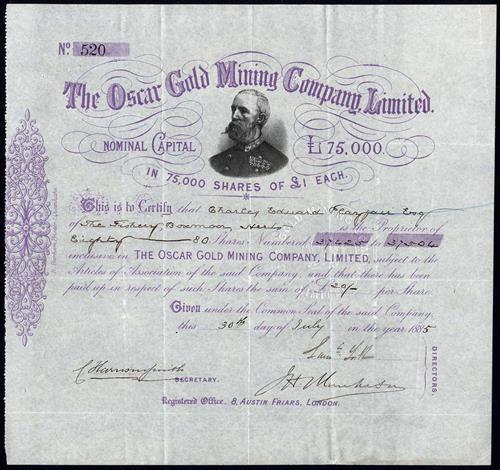 No. 520
The Oscar Gold Mining Company, Limited.
NOMINAL CAPITAL £75,000.
IN 75,000 SHARES OF £1 EACH.
This is to Certify that Charles Edward Esq
of The Fishery is the Proprietor of
Eighty 80 Shares Numbered 37425 to 37504
inclusive in THE OSCAR GOLD MINING COMPANY, LIMITED, subject to the
Articles of Association of the said Company, and that there has been
paid up in respect of such Shares the sum of £ 20/- per Share.
Given under the Common Seal of the said Company,
this 30th day of July in the year 1885
SECRETARY.
DIRECTORS
Registered Office. 8, AUSTIN FRIARS, LONDON.